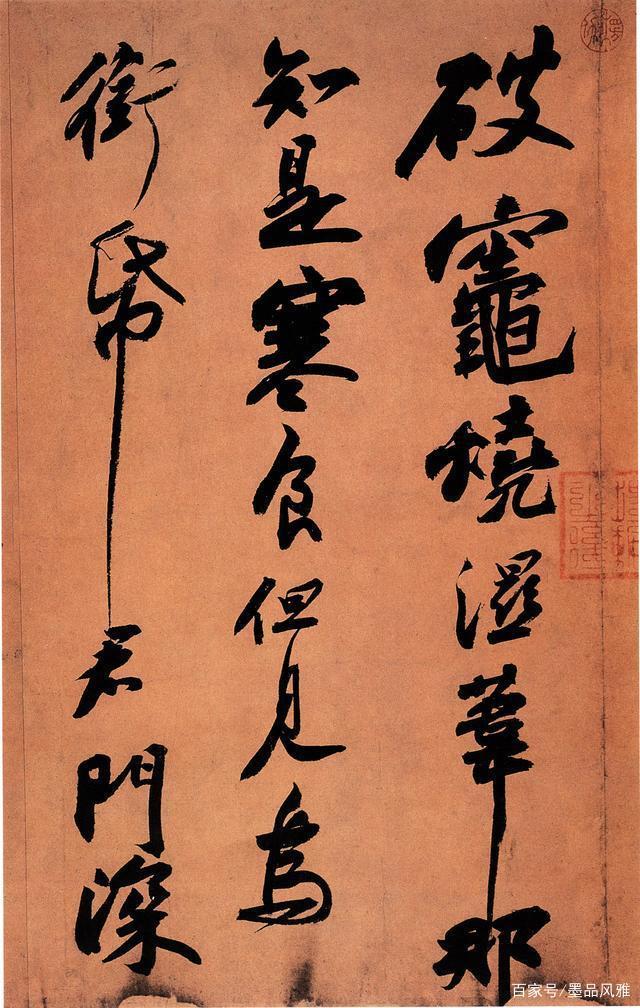 破竈燒濕葦那
知是寒食但見烏
銜帋君門深
百家号/墨品风雅